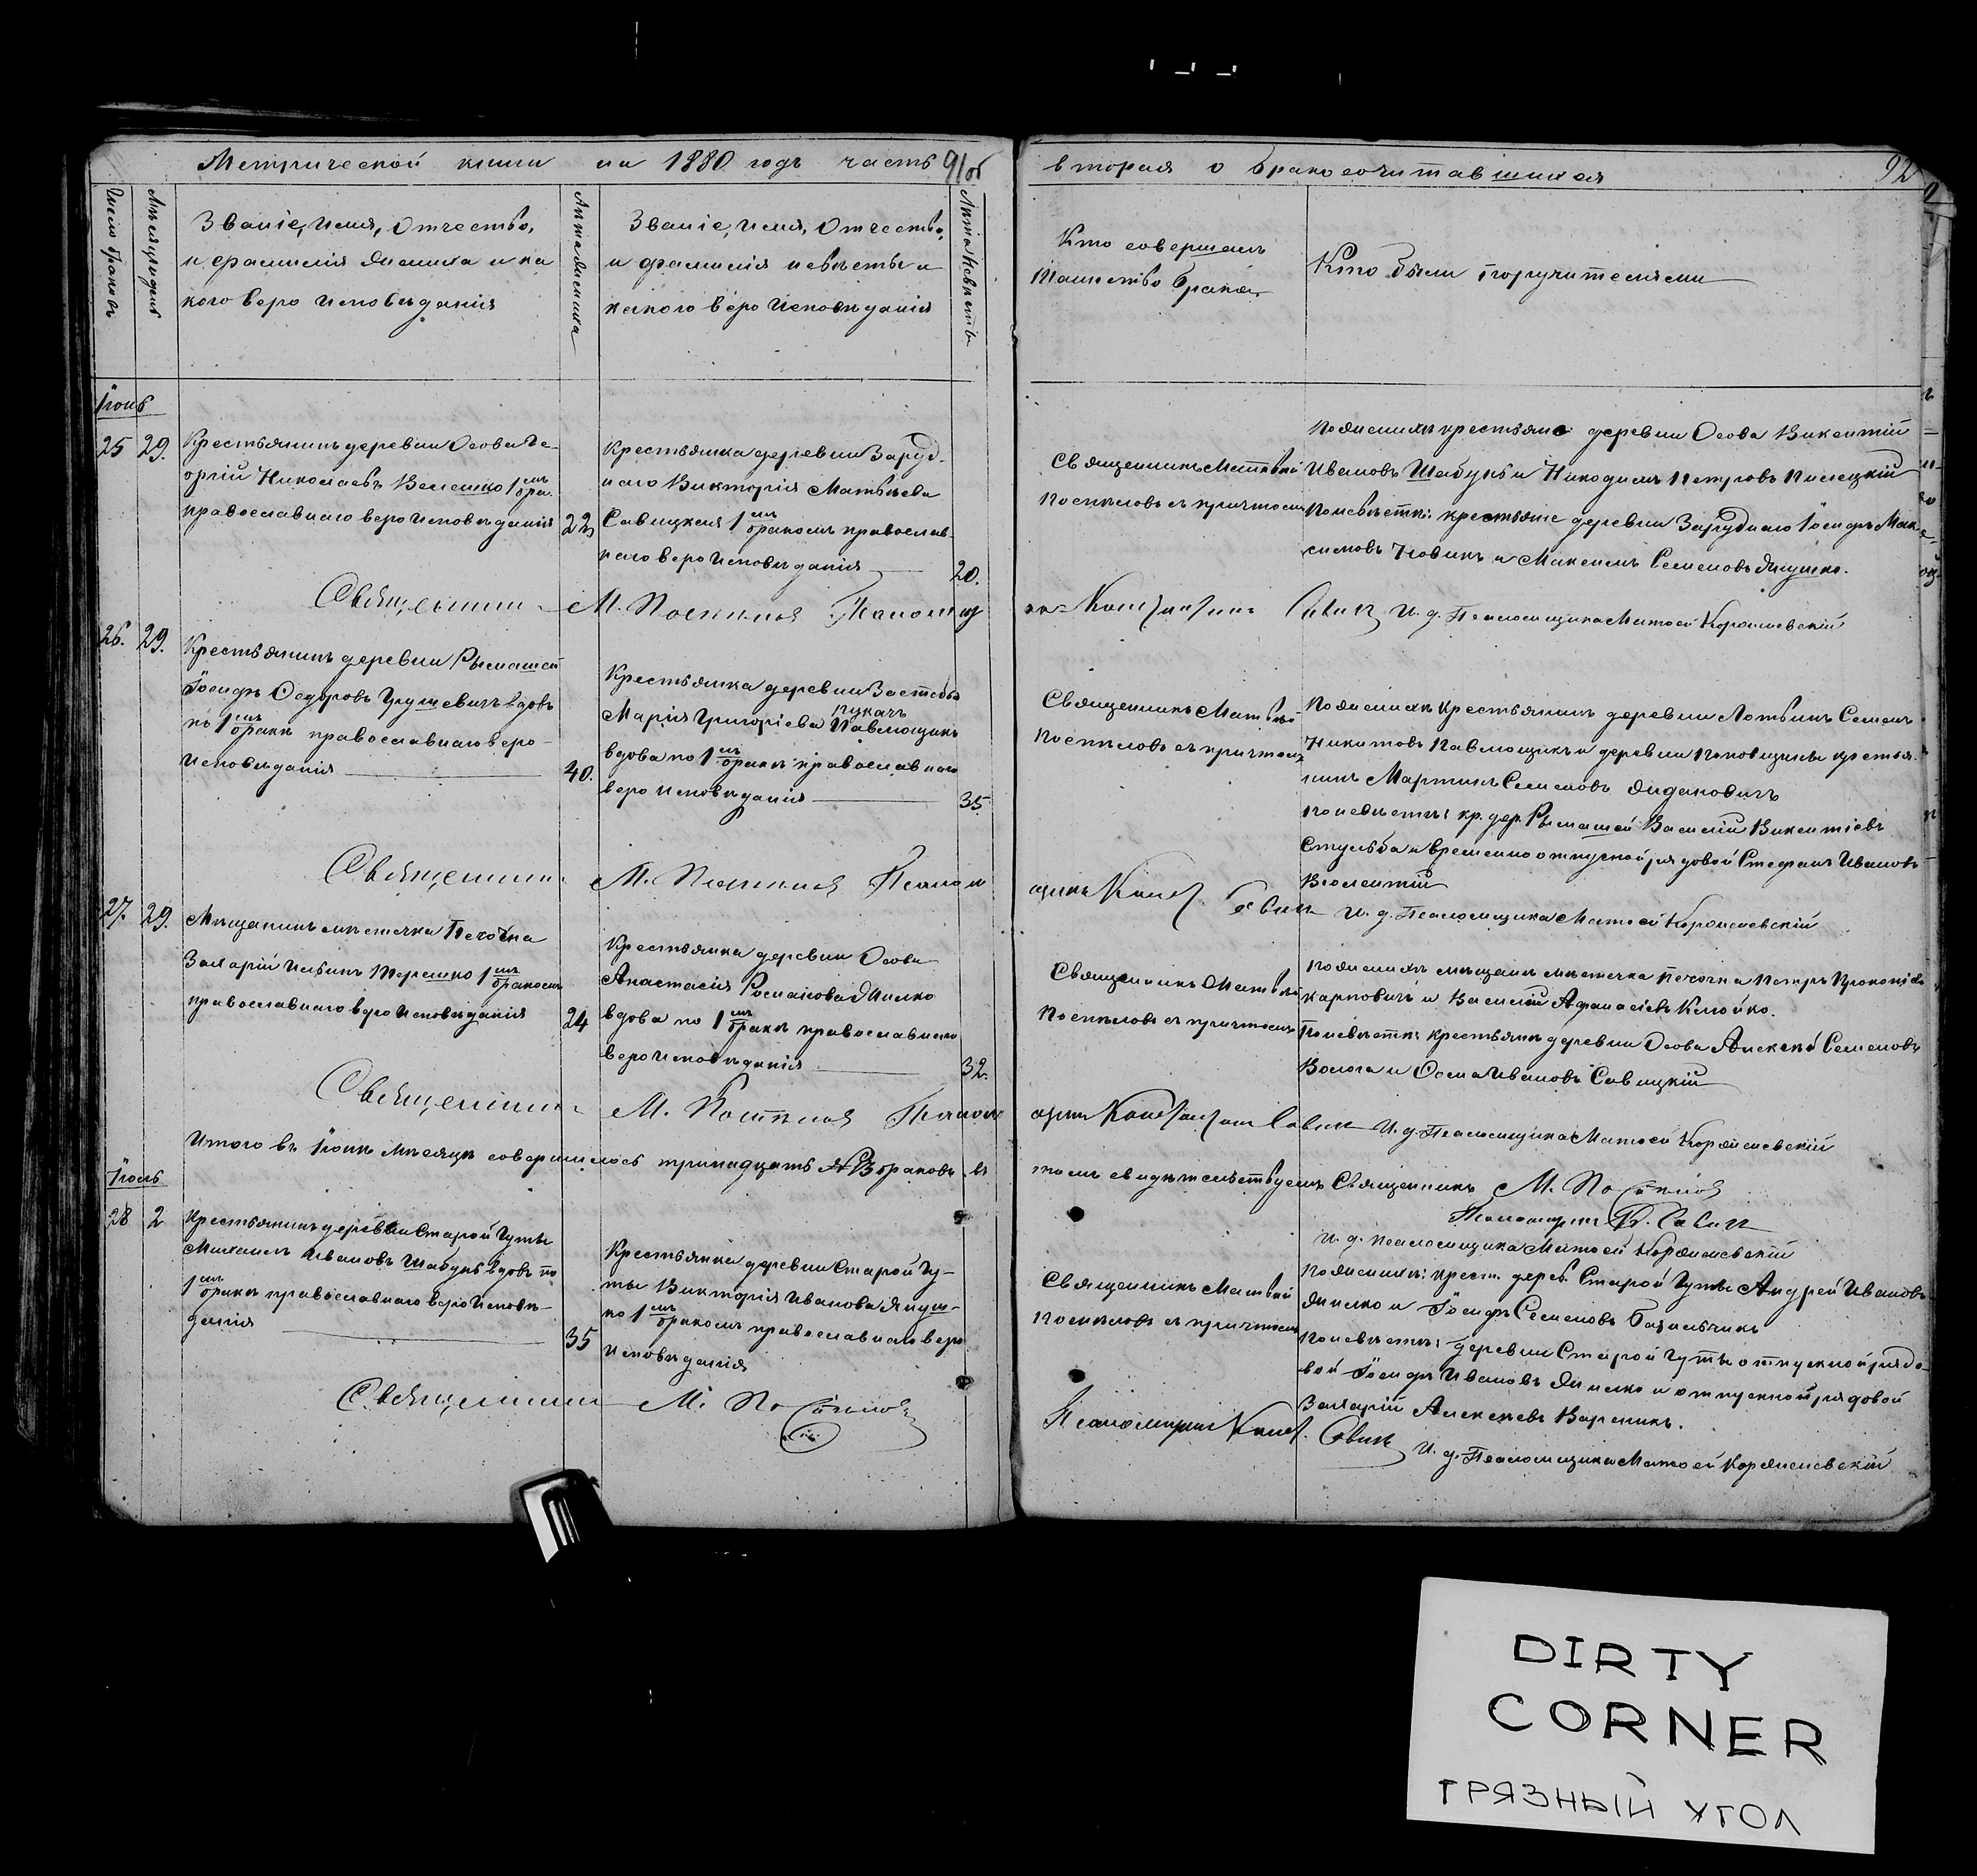 Метрической книги на 1880 годъ часть
91об
вторая о бракосочитавшихся
92
Число браковъ
Мѣсяцъ и день
Званіе, Имя, Отчество,
и фамилія жениха и ка
кого вероисповѣданія
Лѣта жениха
Званіе, Имя, Отчество,
и фамилія невѣсты и
какого вероисповѣданія
Лѣта невѣсты
Кто совершалъ
Таинство брака
Кто были поручителями
Іюнь
25 29.
Крестьянинъ деревни Осова Ге-
оргій Николаевъ Велешко 1мъ бра.
православнаго вероисповѣданія 22
Крестьянка деревни Заруд-
наго Викторія Матвѣева
Савицкая 1мъ бракомъ православ-
наго вероисповѣданія 20.
Священникъ Матвей
Поспѣловъ съ причтомъ
По женихѣ крестьяне деревни Осова Викентій
Ивановъ Шабунь и Никодимъ Петровъ Пилецкій
По невѣстѣ: крестьяне деревни Заруднаго Іосифъ Мак-
симовъ Новикъ и Максимъ Семеновъ
Священникъ М. Поспѣловъ Псаломщ
икъ Савич И. д. Псаломщика Матвей
26. 29.
Крестьянинъ деревни Рымашей
Іосифъ Федоровъ Грушевичъ вдовъ
по 1мъ бракѣ православнаго веро-
исповѣданія 40.
Крестьянка деревни
Марія Григоріева Павлющикъ
вдова по 1мъ бракѣ православнаго
вероисповѣданія 35.
Священникъ Матвей
Поспѣловъ съ причтомъ
По женихѣ крестьянинъ деревни Лотвинъ Семенъ
Никитовъ Павлющикъ и деревни Поповщины крестья-
нинъ Мартинъ Семеновъ Дидковичъ
По невѣстѣ: кр. дер. Рымашей Василій Викентіевъ
и временно отпускной рядовой Стефанъ Ивановъ
Священникъ М. Поспѣловъ Псалом
щикъ Конст. Савич И. д. Псаломщика Матвей
27. 29.
Мѣщанинъ мѣстечка
Захарій Ильинъ Терешко 1мъ бракомъ
православнаго вероисповѣданія 24
Крестьянка деревни Осова
Анастасія Романова
вдова по 1мъ бракѣ православнаго
вероисповѣданія 32.
Священникъ Матвей
Поспѣловъ съ причтомъ
По женихѣ мѣщане мѣстечка Петръ Прокопіевъ
Карповичъ и Василій Афанасіевъ Клюйко.
По невѣстѣ: крестьяне деревни Осова Алексѣй Семеновъ
Волога и Фома Ивановъ Савицкій
Священникъ М. Поспѣловъ Псалом
щикъ Константинъ Савич И. д. Псаломщика Матвей
Итого въ Іюнѣ мѣсяцѣ совершилось тринадцать №13 браковъ, въ
томъ свидѣтельствуемъ Священникъ М. Поспѣловъ
Псаломщикъ К. Савич
И. д. Псаломщика Матвей
Іюль
28 2
Крестьянинъ деревни Старой Гуты
Михаилъ Ивановъ Шабунь вдовъ по
1мъ бракѣ православнаго вероисповѣ-
данія 35
Крестьянка деревни Старой Гу-
ты Викторія Иванова Януш-
ко 1мъ бракомъ православнаго веро
исповѣданія
Священникъ Матвей
Поспѣловъ съ причтомъ
По женихѣ: крест. дерев. Старой Гуты Андрей Ивановъ
и Іосифъ Семеновъ Базыльчикъ
По невѣстѣ: деревни Старой Гуты отпускной рядо-
вой Іосифъ Ивановъ и отпускной рядовой
Захарій Алексѣевъ Вареникъ.
Священникъ М. Поспѣловъ
Псаломщикъ Конст. Савич И. д. Псаломщика Матвей
DIRTY
CORNER
ГРЯЗНЫЙ УГОЛ